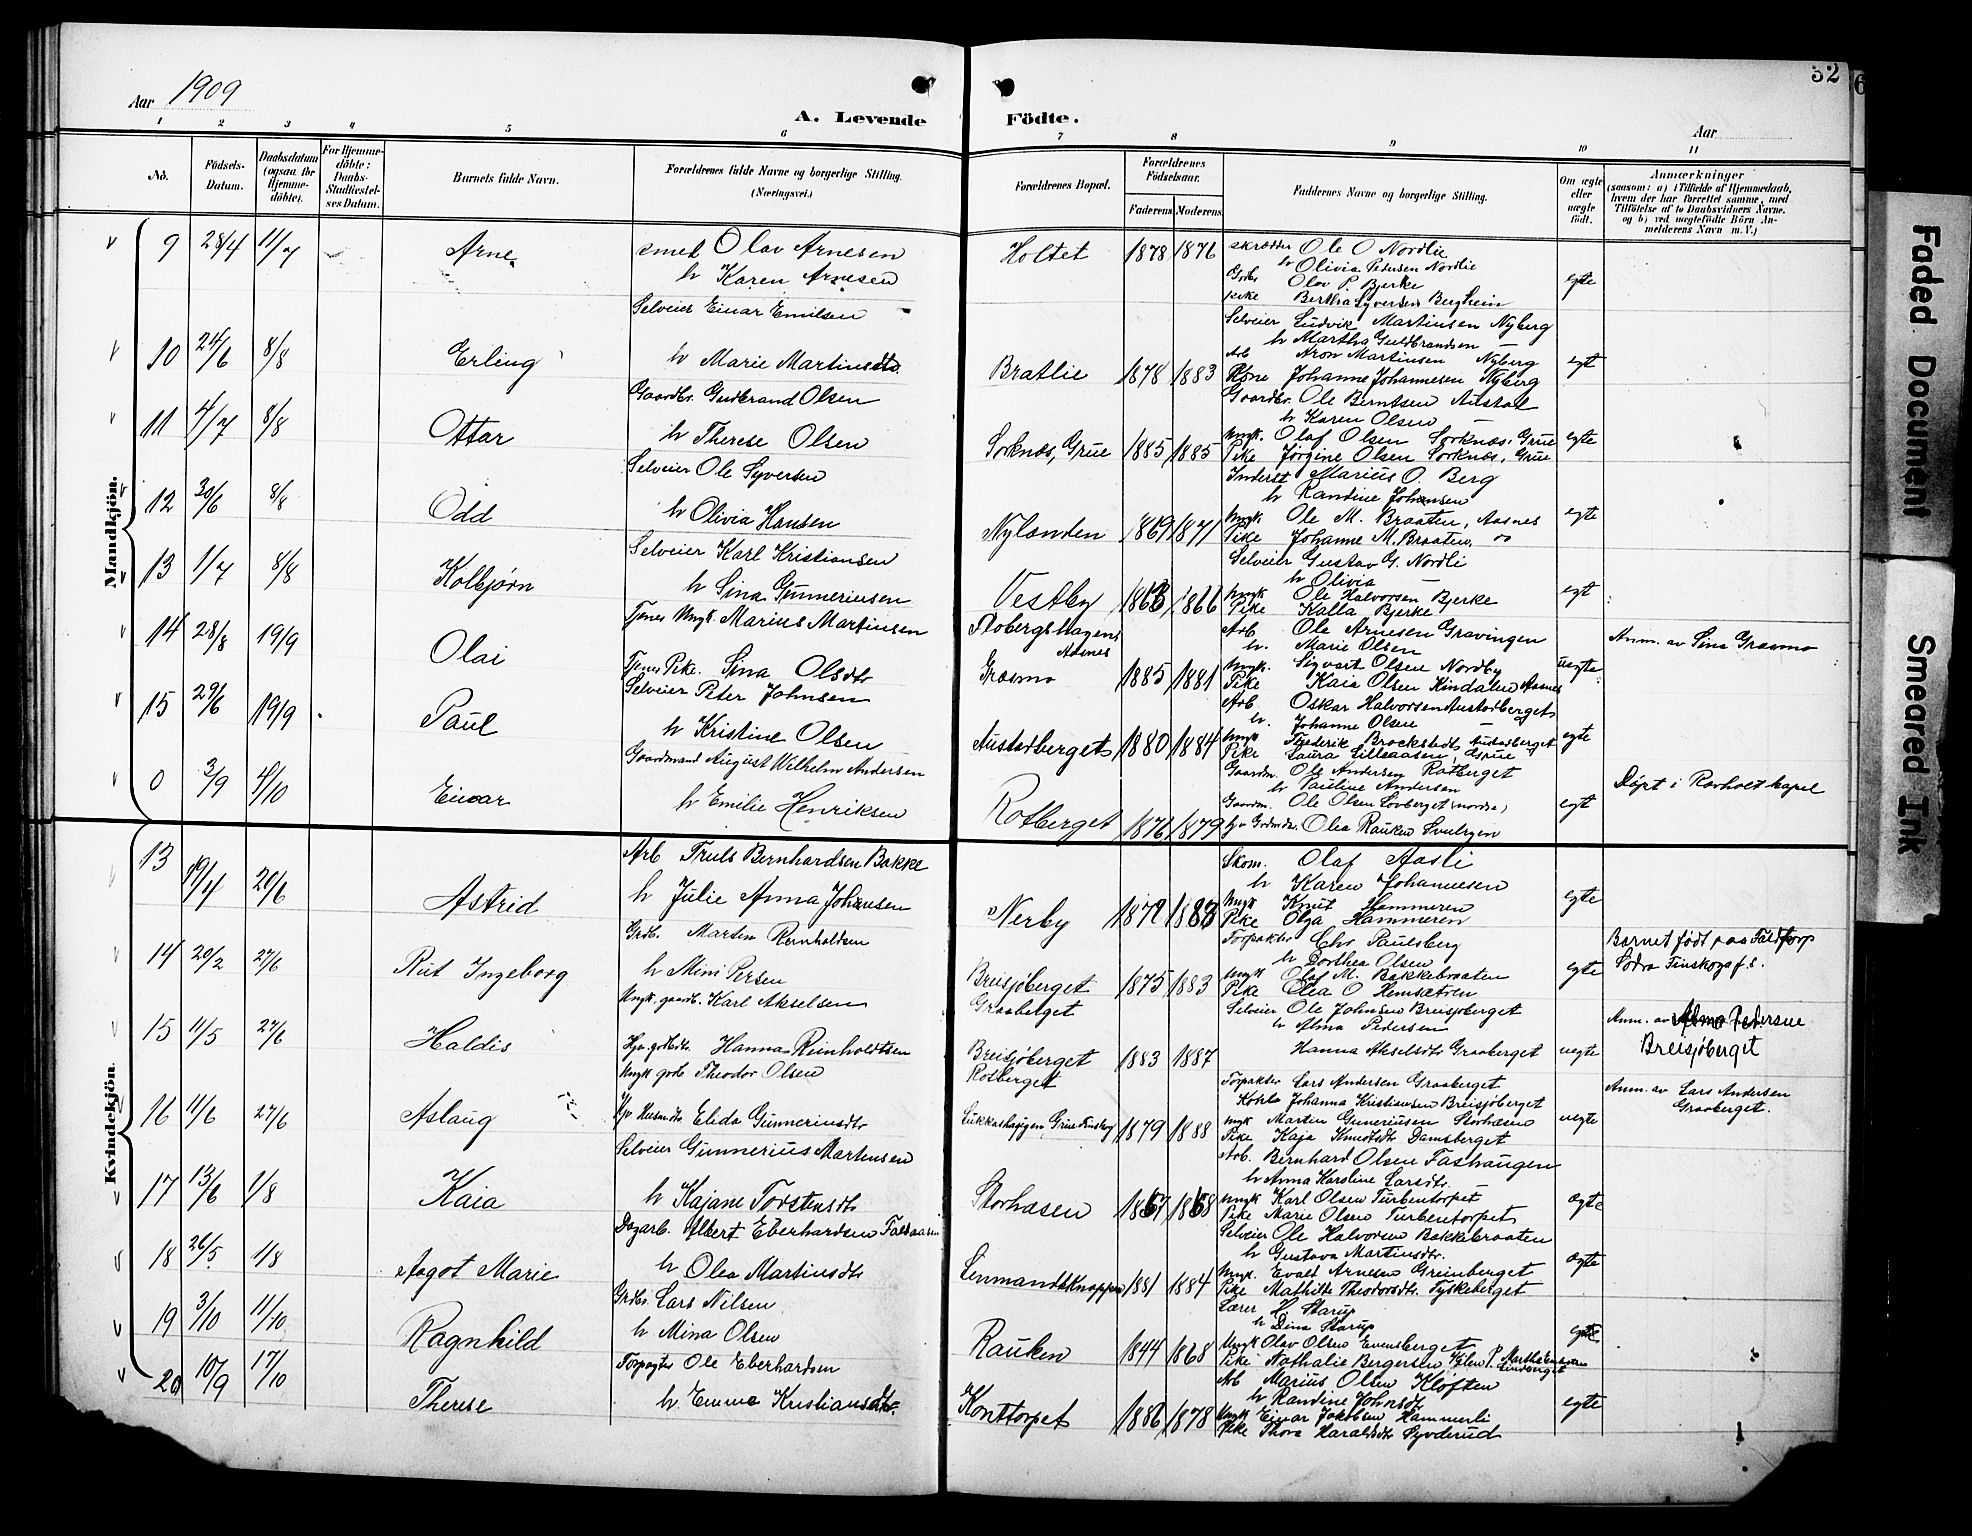 Aar 1909
A. Levende Födte.
Aar
32
1 2 3 4 5 6 7 8 9 10 11
No.
Födsels-Datum.
Daabsdatum (ogsaa for Hjemmedöbte).
For Hjemmedöbte: Daabs-Stadfæstelses Datum.
Barnets fulde Navn.
Forældrenes fulde Navne og borgerlige Stilling. (Næringsvei.)
Forældrenes Bopæl.
Forældrenes Födselsaar.
Faderens Moderens
Faddernes Navne og borgerlige Stilling.
Om ægte eller uægte födt.
Anmærkninger
(saasom: a) i Tilfælde af Hjemmedaab, hvem der har forrettet samme, med Tilföielse af to Daabsvidners Navne. og b) ved uægtefödte Börn Anmelderens Navn m. V.)
Mandkjön.
9 28/4 11/7 Arne
smed Olav Arnesen
h Karen Arnesen
Holtet 1878 1876
skrædder Ole O Nordlie
h Olivia Pedersen Nordlie
Grdbr Olav P. Bjerke
pike Bertha Syversen Bergheim
egte
10 24/6 8/8 Erling
Selveier Einar Emilsen
h Marie Martinsdtr.
Bratlie 1878 1883
Selveier Ludvik Martinsen Nyberg
h Martha Guldbrandsen
Arb Aron Martinsen Nyberg
Kone Johanne Johannesen Nyberg
egt
11 4/7 8/8 Ottar
Gaardbr. Gudbrand Olsen
h Therese Olsen
Sorknæs, Grue 1885 1885
Gaardbr. Ole Berntsen Austad
h Karen Olsen
Ungk. Olaf Olsen Sorknæs, Grue
Pike Jørgine Olsen Sorknæs, Grue
egte
12 30/6 8/8 Odd
Selveier Ole Syversen
h Olivia Hansen
Nylænden 1869 1871
Inderst Marius O. Berg
h Randine Johansen
Ungk Ole M. Braaten, Aasnes
Pike Johanne M. Braaten,
egte
13 1/7 8/8 Kolbjørn
Selveier Karl Kristiansen
h Sina Gunneriusen
Vestby 1863 1866
Selveier Gustav G. Nordli
h Olivia —
Ungk Ole Halvorsen Bjerke
Pike Kalla Bjerke
egt
14 28/8 19/9 Olai
Tjenes Ungk. Marius Martinsen
Tjenes Pike. Sina Olsdtr
Flobergshagen Aasnes
Græsmo 1885 1881
Arb Ole Arnesen Gravingen
h. Marie Olsen
Ungk. Sigvart Olsen Nordby
Pike Kaia Olsen Kindalen Aasnes
uegte
Anm. av Sina Græsmo
15 29/6 19/9 Paul
Selveier Peter Johnsen
h Kristine Olsen
Austadberget 1880 1884
Arb Oskar Halvorsen Austadberget
h. Johanne Olsen —
Ungk Frederik Brockstedt, Austadberget
Pike Laura Lilleaasen, Grue
egte
0 3/9 4/10 Einar
Gaardmand August Wilhelm Andersen
h Emilie Henriksen
Rotberget 1876 1879
Gaardm. Ole Andersen Rotberget
h Pauline Andersen
Gaardm. Ole Olsen Lovberget (nordre)
Olea Rauken
egt
Døpt i Rovholt kapel
Kvindekjön.
13 19/4 20/6 Astrid
Arb Truls Bernhardsen Bakke
h Julie Anna Johansen
Nerby 1879 1883
Skom. Olaf Aasli
h Karen Johannesen
Ungk Knut Hammeren
Pike Olga Hammeren
egte
14 20/2 27/6 Rut Ingeborg
Grdb. Martin Reinholdsen
h Mini Persen
Breisjøberget 1875 1883
Torpakter Chr Paulsberg
h Dorthea Olsen
Ungk Olaf M. Bakkebraaten
Pike Olea O Hemsætren
egte
Barnet født paa Fäldtorp
Södra Finskoga f.s.
15 11/5 27/6 Haldis
Ungk. gaardb. Karl Akselsen
Hjv. grdbdtr Hanna Reinholdtsen
Graaberget
Breisjøberget 1883 1887
Selveier Ole Johnsen Breisjøberget
h Alma Pedersen
Hanna Akselsdtr Graaberget
uegte
Anm. av Alma Pedersen
Breisjöberget
16 11/6 27/6 Aslaug
Ungk grdb Theodor Olsen
Hjv Husmdtr Elida Gunneriusdtr
Rotberget
Lukkashaugen, Grue Finskog 1879 1888
Torpakter Lars Andersen Graaberget
Johanna Kristiansen Breisjøberget
Ungk Martin Guneriusen Storhasen
Pike Kaja Knudsdtr Damsberget
uegte
Anm. av Lars Andersen
Graaberget.
17 13/6 1/8 Kaia
Selveier Gunnerius Martensen
h Kajane Torstensdtr
Storhasen 1867 1868
Arb. Bernhard Olsen Fashaugen
h Anna Karoline Larsdtr.
Ungk Karl Olsen Turbentorpet
Pike Marie Olsen Turbentorpet
ægte
18 26/5 1/8 Aagot Marie
Dagarb. Albert Eberhardsen Faldaasen
h Olea Martinsdtr
Lenmandsknappen 1881 1884
Selveier Ole Halvorsen Bakkebraaten
h Gustava Martinsdtr.
Ungk. Evald Arnesen Greinberget
Pike Mathilde Theodorsdtr Tyskeberget
ægte
19 3/10 11/10 Ragnhild
Grdbr. Lars Nilsen
h Mina Olsen
Rauken 1844 1868
Lærer H. Starup
h Dina Starup
Ungk Olav Olsen Evensberget
Pike Nathalie Bergersen Kilen P. Martha
egte
20 10/9 17/10 Therese
Torpagter Ole Eberhardsen
h Emma Kristiansdtr.
Konttorpet 1886 1878
Arb Marius Olsen Kløften
h Randine Johnsdtr
Ungk Einar Jakobsen Hammerli
Pike Thora Haraldsdtr Syvderud
egte
Faded Document
Smeared Ink